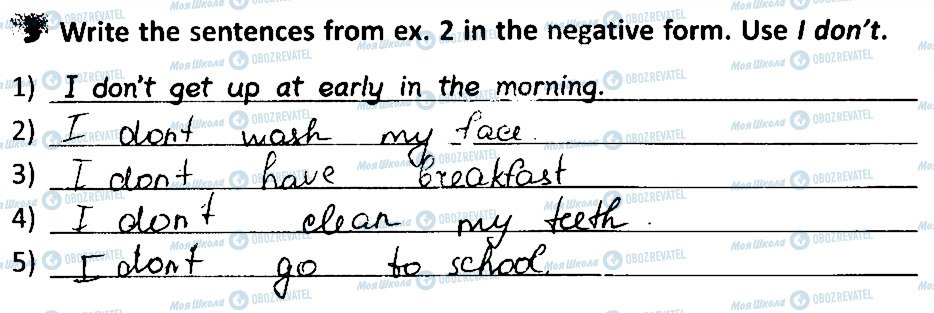 Write the sentences from ex. 2 in the negative form. Use I don't.
1) I don't get up at early in the morning.
2) I dont wash my face.
3) I dont have breakfast
4) I don't clean my teeth.
5) I dont go to school.